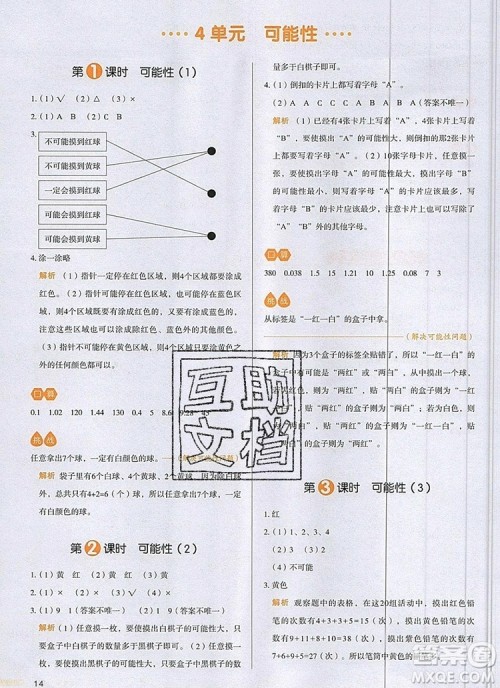 4单元 可能性
第1课时 可能性（1）
1.（1）√ （2）△ （3）×
2.（1）A （2）B （3）C
3.
不可能摸到红球
不可能摸到黄球
一定会摸到红球
可能会摸到黄球
4. 涂一涂略
解析 （1）指针一定停在红色区域，则4个区域都要涂成
红色。（2）指针可能停在蓝色区域，则4个区域都可以涂
成蓝色，也可以3个区域涂成蓝色，1个区域涂成其他颜色。
注意不要忘记4个区域都是蓝色，指针也可能停在
蓝色区域。（3）指针不可能停在黄色区域，则涂除黄色之
外的任何颜色都可以。
口算
0.1 1.02 120 1.44 130 0.4 5 8.6 9.28 45
挑战
任意拿出7个球，一定有一个白颜色的球。
解析 袋子里有6个白球，4个黄球，2个
球，总共就有4+2=6（个）不是白球，所以任意拿7个球，一定有
一个白颜色的球。
第2课时 可能性（2）
1.（1）黄 红 （2）黄 红
2.（1）× （2）× （3）×
3.（1）9 1（答案不唯一） （2）1 9（答案不唯一）
解析 （1）任意摸一枚，要使摸出白棋子的可能性大，则
白棋子的数量多于黑棋子即可。
（2）任意摸一枚，要使摸出黑棋子的可能性大，则黑棋子的数
14
量多于白棋子即可。
4.（1）倒扣的卡片上都写着字母“A”。
（2）A A C A B C A B A A（答案不唯一）
解析 （1）已经有4张卡片上写着字母“A”，1张卡片上写着
“B”，要使摸出“A”的可能性最大，则倒扣的2张卡片
上都要写着字母“A”。（2）10张字母卡片，任意摸一
张，要使摸出字母“A”的可能性最大，则写字母
“A”的卡片应该最多，写字母“B”的卡片应该少于写
字母“A”的卡片，还可以有写着除字母“A”和字母
“B”外的其他字母。
口算
380 0.038 1.5 1.21 15 1.25 0.24 0.08 7 3
挑战
从标签是“一红一白”的盒子中拿。
（解决可能性问题）
解析 因为3个盒子的标签全贴错了，所以贴“一红一白”的
可能是“两红”或“两白”。如果拿出一个
红球，则是“两红”，贴“两白”的盒子则为“一红一
白”，贴“两红”的盒子则为“两白”。如果拿出一个
白球，则是“两白”，贴“两红”的盒子则为“一红一
白”，贴“两白”的盒子则为“两红”。
第3课时 可能性（3）
1. 红
2.（1）2 （2）1、3 （3）4
3. 黄色
解析 观察题中的表格，在这20组活动中，摸出红色铅
笔的次数有9+11+8+10=38（次），摸出黄色铅笔的次数有
7+6+9+7=29（次），所以笔筒中黄色
互助文档